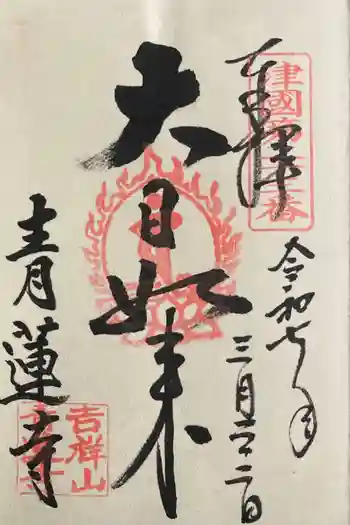 奉拝
津國第
番
令和七年
三月二十二日
大日如来
青蓮寺
吉祥山